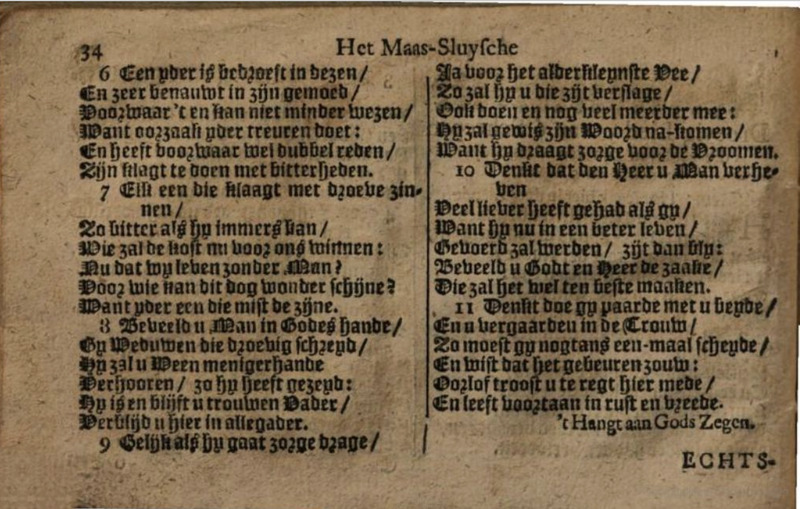 34
Het Maas-Sluysche
6 Een yder is bedroeft in dezen/
En zeer benauwt in zijn gemoed/
Voorwaar 't en kan niet minder wezen/
Want oorzaak yder treuren doet:
En heeft voorwaar wel dubbel reden/
Zijn klagt te doen met bitterheden.
7 Elk een die klaagt met droeve zin-
nen/
Zo bitter als hy immers kan/
Wie zal de kost nu voor ons winnen:
Nu dat wy leven zonder Man?
Voor wie kan dit dog wonder schijne?
Want yder een die mist de zijne.
8 Beveeld u Man in Godes hande/
Gy Weduwen die droevig schreyd/
Hy zal u Ween menigerhande
Verhooren/ zo hy heeft gezeyd:
Hy is en blijft u trouwen Vader/
Verblijd u hier in allegader.
9 Gelijk als hy gaat zorge drage/
Ja voor het alderkleynste Vee/
Zo zal hy u die zijt verslage/
Ook doen en nog veel meerder mee:
Hy zal gewis zijn Woord na-komen/
Want hy draagt zorge voor de Vroomen.
10 Denkt dat den Heer u Man verhe-
ven
Veel liever heeft gehad als gy/
Want hy nu in een beter leven/
Gevoerd zal werden/ zijt dan bly:
Beveeld u Godt en Heer de zaake/
Die zal het wel ten beste maaken.
11 Denkt doe gy paarde met u beyde/
En u vergaarden in de Trouw/
Zo moest gy nogtans een-maal scheyde/
En wist dat het gebeuren zouw:
Oorlof troost u te regt hier mede/
En leeft voortaan in rust en vreede.
't Hangt aan Gods Zegen.
ECHTS-